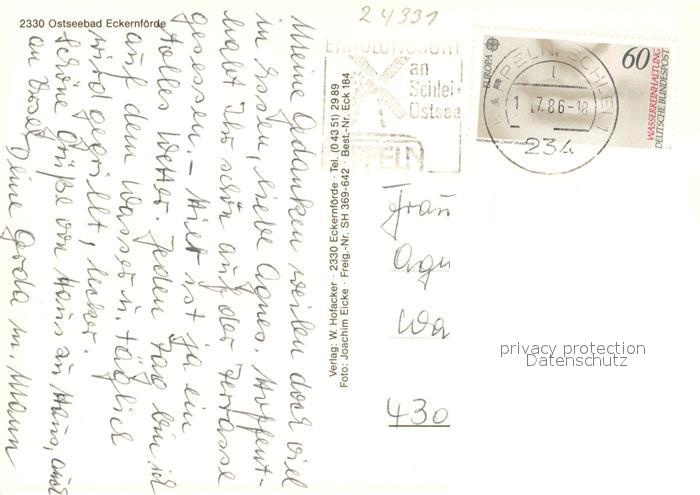 2330 Ostseebad Eckernförde
24331
Meine Gedanken weilen doch viel
in Essen, liebe Agnes. Hoffent-
habt Ihr schön auf der Terrasse
gesessen. – Hier ist ja ein
tolles Wetter. Jeden Tag bin ich
auf dem Wasser u. täglich
wird gegrillt, lecker.
Schöne Grüße von Haus zu Haus, auch
an
Deine Gerda u. Mann
Verlag: W. Hofacker · 2330 Eckernförde · Tel. (0 43 51) 29 89
Foto: Joachim Eicke · Freig.-Nr. SH 369-642 · Best.-Nr. Eck 184
ERHOLUNGSORT
an
Schlei
Ostsee
KAPPELN
KAPPELN, SCHLEI 1
1
1.7.86-18
234
EUROPA
60
WASSERREINHALTUNG
DEUTSCHE BUNDESPOST
Frau
Agn
Wa
430
privacy protection
Datenschutz